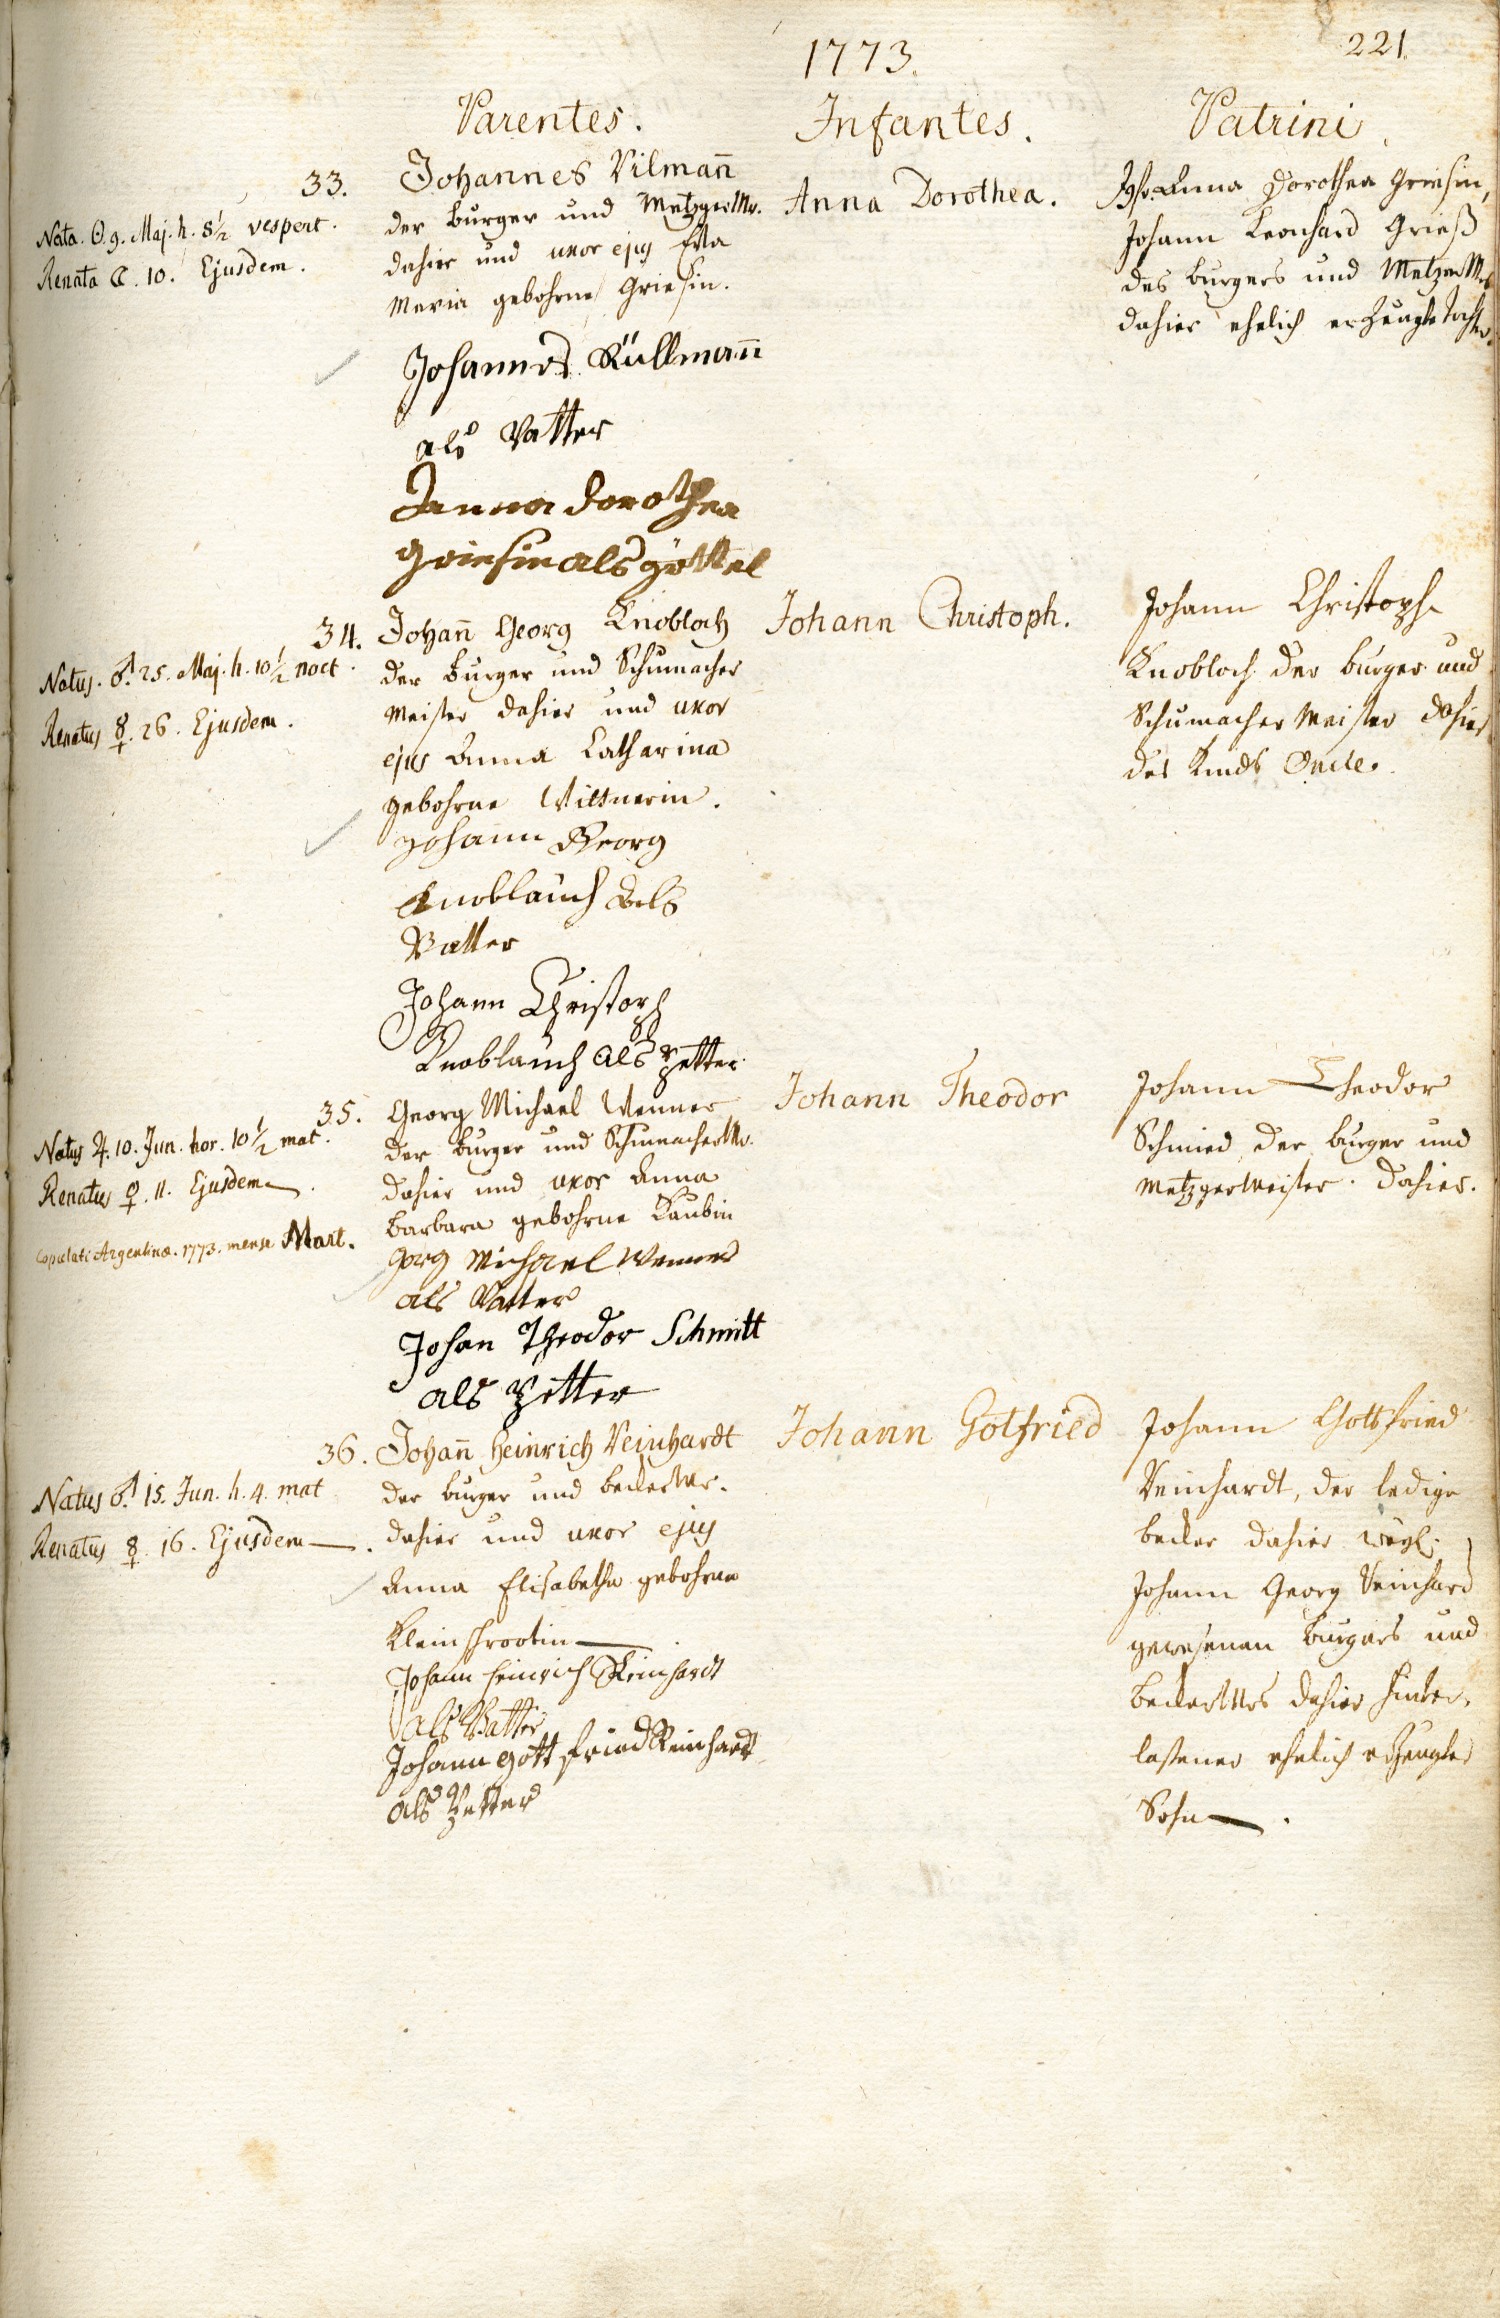 1773.
221.
Parentes.
Infantes.
Patrini
33.
Nata. ☉ 9. Maj. h. 8½ vespert.
Renata ☾. 10. Ejusdem.
Johannes Kilman̄
der burger und Metzger Mr.
dahier und uxor ejus Eva
Maria gebohrne Griesin.
Johannes Küllman̄
als Vatter
Anna Dorothea
Griesin als göttel
Anna Dorothea.
Jgfr. Anna Dorothea Griesin,
Johann Leonhard Grieß
des burgers und Metzger Mrs
dahier ehelich erzeugte Tochter.
34.
Natus. ♂. 25. Maj. h. 10½ noct.
Renatus ☿. 26. Ejusdem.
Johan̄ Georg Knobloch
der burger und Schumacher
Meister dahier und uxor
ejus Anna Catharina
gebohrne Wittnerin.
Johann Georg
Knoblauch als
Vatter
Johann Christoph
Knoblauch als Petter
Johann Christoph.
Johann Christoph
Knobloch der burger und
Schumacher Meister dahier
des Kinds Oncle.
35.
Natus ♃. 10. Jun. hor. 10½ mat.
Renatus ♀. 11. Ejusdem.
Copulati Argentinæ. 1773. mense Mart.
Georg Michael Wenner
der burger und Schumacher Mr.
dahier und uxor Anna
Barbara gebohrne Raubin
Gorg Michael Wenner
als Vatter
Johan Theodor Schmitt
als Petter
Johann Theodor
Johann Theodor
Schmied der burger und
Metzgermeister dahier.
36.
Natus ♂. 15. Jun. h. 4. mat
Renatus ☿. 16. Ejusdem.
Johan̄ Heinrich Reinhardt
der burger und becker Mr.
dahier und uxor ejus
Anna Elisabetha gebohrne
Kleinschrootin
Johann Heinrich Reinhardt
als Vatter
Johann Gottfried Reinhardt
als Petter
Johann Gotfried
Johann Gottfried
Reinhardt, der ledige
becker dahier weyl.
Johann Georg Reinhard
gewesenen burgers und
becker Mrs dahier hinter-
lassener ehelich erzeugter
Sohn.